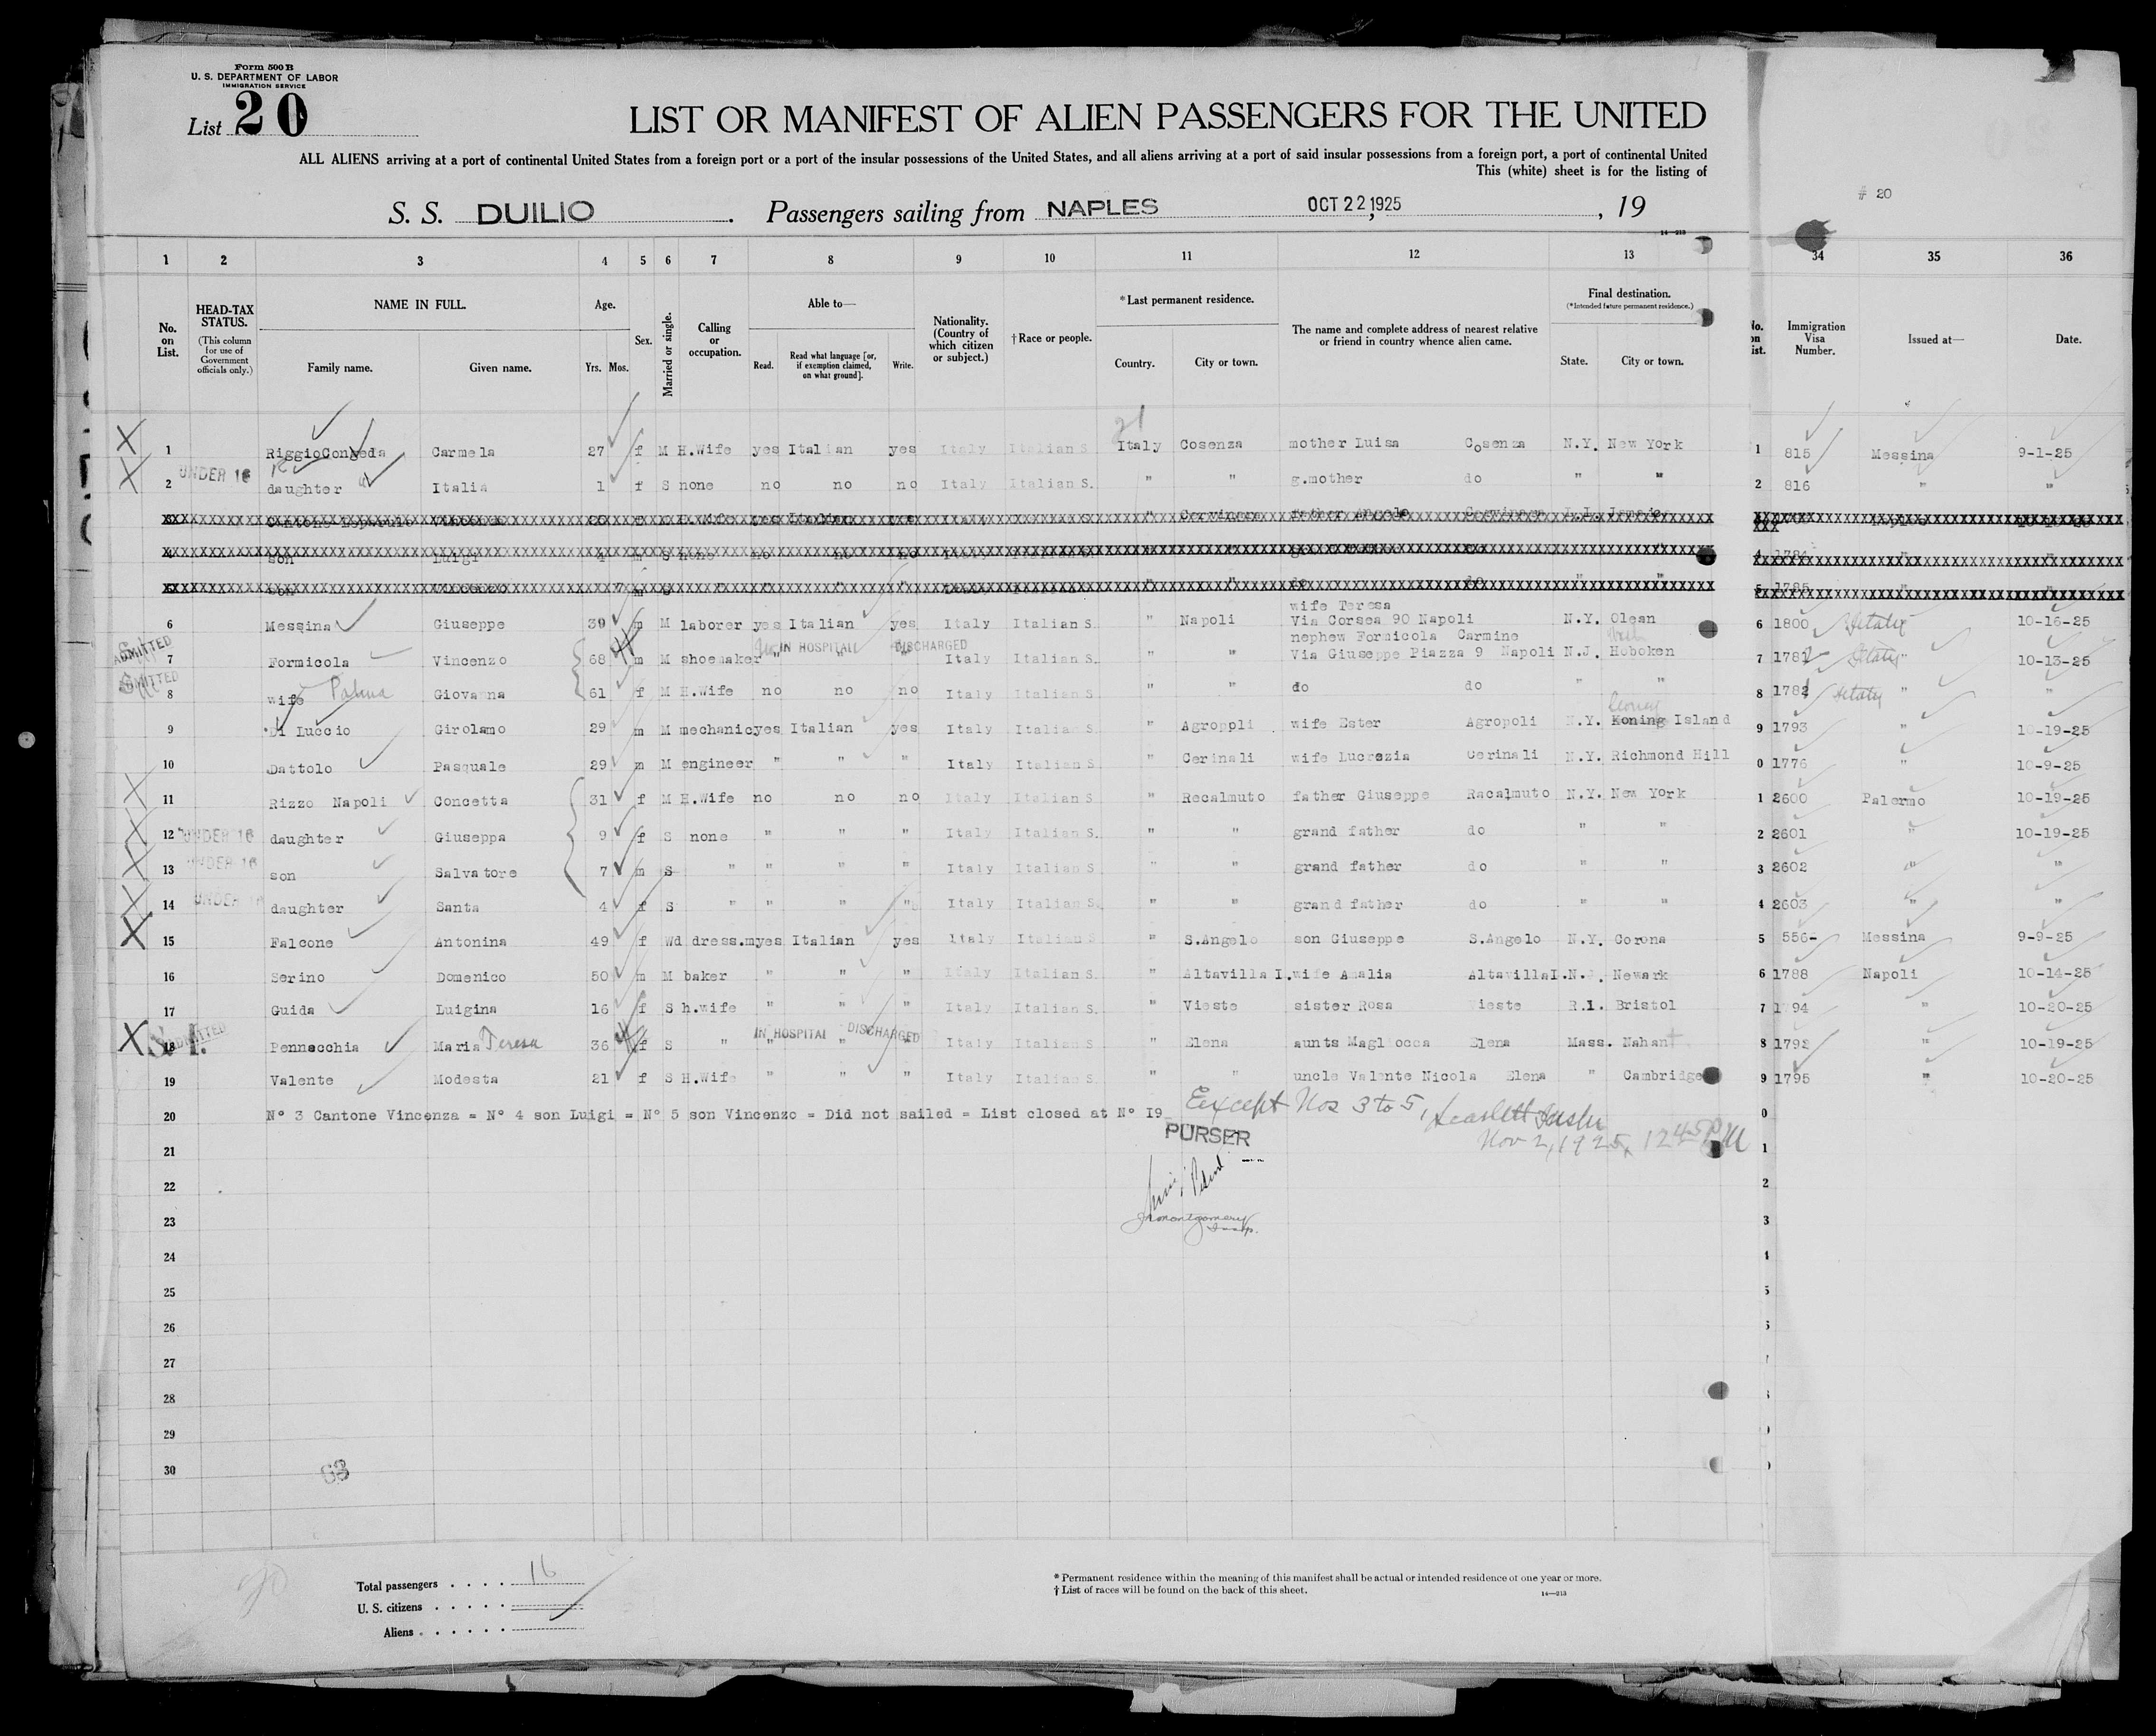 Form 500 B
U. S. DEPARTMENT OF LABOR
IMMIGRATION SERVICE
List 20
LIST OR MANIFEST OF ALIEN PASSENGERS FOR THE UNITED
ALL ALIENS arriving at a port of continental United States from a foreign port or a port of the insular possessions of the United States, and all aliens arriving at a port of said insular possessions from a foreign port, a port of continental United
This (white) sheet is for the listing of
# 20
S. S. DUILIO. Passengers sailing from NAPLES OCT 22, 1925, 19
14—213
1 2 3 4 5 6 7 8 9 10 11 12 13 34 35 36
No. on List.
HEAD-TAX STATUS.
(This column for use of Government officials only.)
NAME IN FULL.
Family name. Given name.
Age.
Yrs. Mos.
Sex.
Married or single.
Calling or occupation.
Able to—
Read. Read what language [or, if exemption claimed, on what ground]. Write.
Nationality. (Country of which citizen or subject.)
†Race or people.
*Last permanent residence.
Country. City or town.
The name and complete address of nearest relative or friend in country whence alien came.
Final destination.
(*Intended future permanent residence.)
State. City or town.
Immigration Visa Number.
Issued at—
Date.
1 RiggioCongeda Carmela 27 f M H.Wife yes Italian yes Italy Italian S Italy Cosenza mother Luisa Cosenza N.Y. New York 1 815 Messina 9-1-25
2 UNDER 16 daughter Italia 1 f S none no no no Italy Italian S. " " g.mother do " " 2 816 " "
4 son Luigi 4 m S none no no no Italy 4 1784
5 son Vincenzo m S 5 1785
wife Teresa
6 Messina Giuseppe 39 m M laborer yes Italian yes Italy Italian S " Napoli Via Corsea 90 Napoli N.Y. Olean 6 1800 10-16-25
ADMITTED IN HOSPITAL DISCHARGED nephew Formicola Carmine
7 Formicola Vincenzo 68 m M shoemaker " " " Italy Italian S. " " Via Giuseppe Piazza 9 Napoli N.J. Hoboken 7 1781 " 10-13-25
ADMITTED
8 wife Palma Giovanna 61 f M H.Wife no no no Italy Italian S " " do do " " 8 1782 " "
9 Di Luccio Girolamo 29 m M mechanic yes Italian yes Italy Italian S " Agropoli wife Ester Agropoli N.Y. Koning Island 9 1793 " 10-19-25
10 Dattolo Pasquale 29 m M engineer " " " Italy Italian S " Cerinali wife Lucrezia Cerinali N.Y. Richmond Hill 0 1776 " 10-9-25
11 Rizzo Napoli Concetta 31 f M H.Wife no no no Italy Italian S " Recalmuto father Giuseppe Racalmuto N.Y. New York 1 2600 Palermo 10-19-25
12 UNDER 16 daughter Giuseppa 9 f S none " " " Italy Italian S. " " grand father do " " 2 2601 " 10-19-25
13 UNDER 16 son Salvatore 7 m S " " " " Italy Italian S " " grand father do " " 3 2602 " "
14 UNDER 16 daughter Santa 4 f S " " " " Italy Italian S. " " grand father do " " 4 2603 " "
15 Falcone Antonina 49 f Wd dress.m yes Italian yes Italy Italian S " S.Angelo son Giuseppe S.Angelo N.Y. Corona 5 556- Messina 9-9-25
16 Serino Domenico 50 m M baker " " " Italy Italian S. " Altavilla I. wife Amalia Altavilla I. N.J. Newark 6 1788 Napoli 10-14-25
17 Guida Luigina 16 f S h.wife " " " Italy Italian S " Vieste sister Rosa Vieste R.I. Bristol 7 1794 " 10-20-25
ADMITTED IN HOSPITAL DISCHARGED
18 Pennacchia Maria Teresa 36 f S " " " " Italy Italian S " Elena aunts Magliocca Elena Mass. Nahant 8 1792 " 10-19-25
19 Valente Modesta 21 f S H.Wife " " " Italy Italian S " " uncle Valente Nicola Elena " Cambridge 9 1795 " 10-20-25
20 N° 3 Cantone Vincenza = N° 4 son Luigi = N° 5 son Vincenzo = Did not sailed = List closed at N° I9 Except Nos 3 to 5, 0
PURSER Nov 2, 1925, 12 45 PM
21 1
22 2
Jnmontgomery
Insp.
23 3
24
25 5
26
27
28
29
30
63
Total passengers 16
U. S. citizens
Aliens
* Permanent residence within the meaning of this manifest shall be actual or intended residence of one year or more.
† List of races will be found on the back of this sheet.
14—213